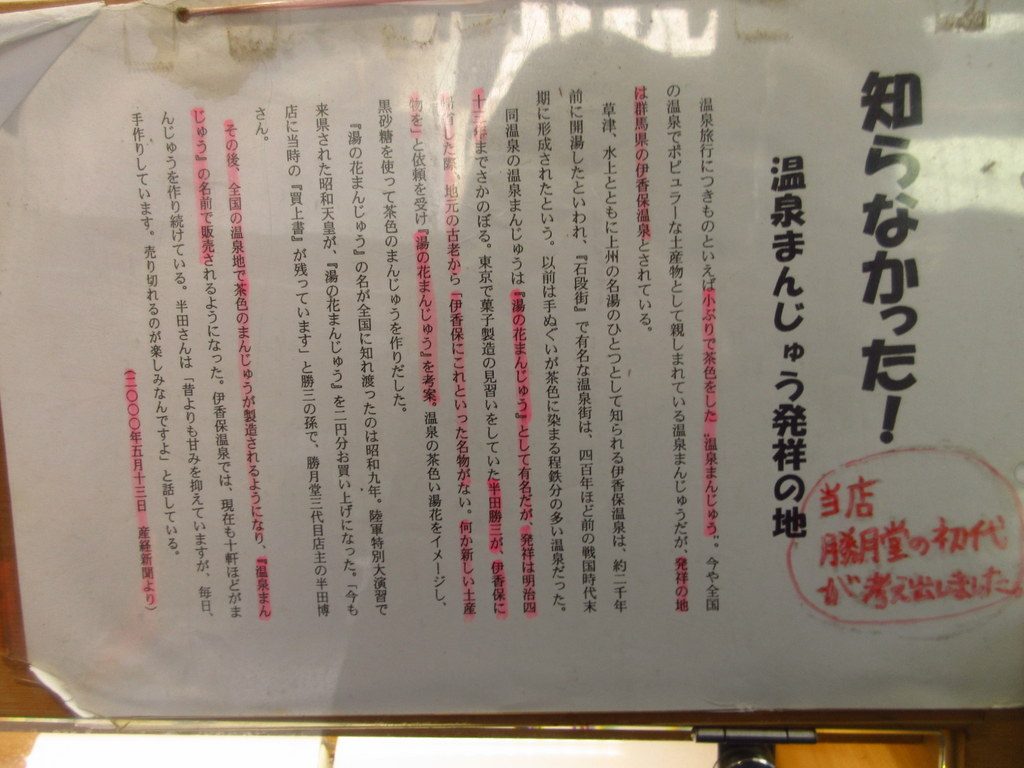 知らなかった!
温泉まんじゅう発祥の地
当店
勝月堂の初代
が考え出しました。
温泉旅行につきものといえば小ぶりで茶色をした“温泉まんじゅう”。今や全国
の温泉でポピュラーな土産物として親しまれている温泉まんじゅうだが、発祥の地
は群馬県の伊香保温泉とされている。
草津、水上とともに上州の名湯のひとつとして知られる伊香保温泉は、約二千年
前に開湯したといわれ、『石段街』で有名な温泉街は、四百年ほど前の戦国時代末
期に形成されたという。以前は手ぬぐいが茶色に染まる程鉄分の多い温泉だった。
同温泉の温泉まんじゅうは『湯の花まんじゅう』として有名だが、発祥は明治四
十三年までさかのぼる。東京で菓子製造の見習いをしていた半田勝三が、伊香保に
した際、地元の古老から「伊香保にこれといった名物がない。何か新しい土産
物を」と依頼を受け『湯の花まんじゅう』を考案。温泉の茶色い湯花をイメージし、
黒砂糖を使って茶色のまんじゅうを作りだした。
『湯の花まんじゅう』の名が全国に知れ渡ったのは昭和九年。陸軍特別大演習で
来県された昭和天皇が、『湯の花まんじゅう』を二円分お買い上げになった。「今も
店に当時の『買上書』が残っています」と勝三の孫で、勝月堂三代目店主の半田博
さん。
その後、全国の温泉地で茶色のまんじゅうが製造されるようになり、『温泉まん
じゅう』の名前で販売されるようになった。伊香保温泉では、現在も十軒ほどがま
んじゅうを作り続けている。半田さんは「昔よりも甘みを抑えていますが、毎日、
手作りしています。売り切れるのが楽しみなんですよ」と話している。
(二〇〇〇年五月十三日 産経新聞より)